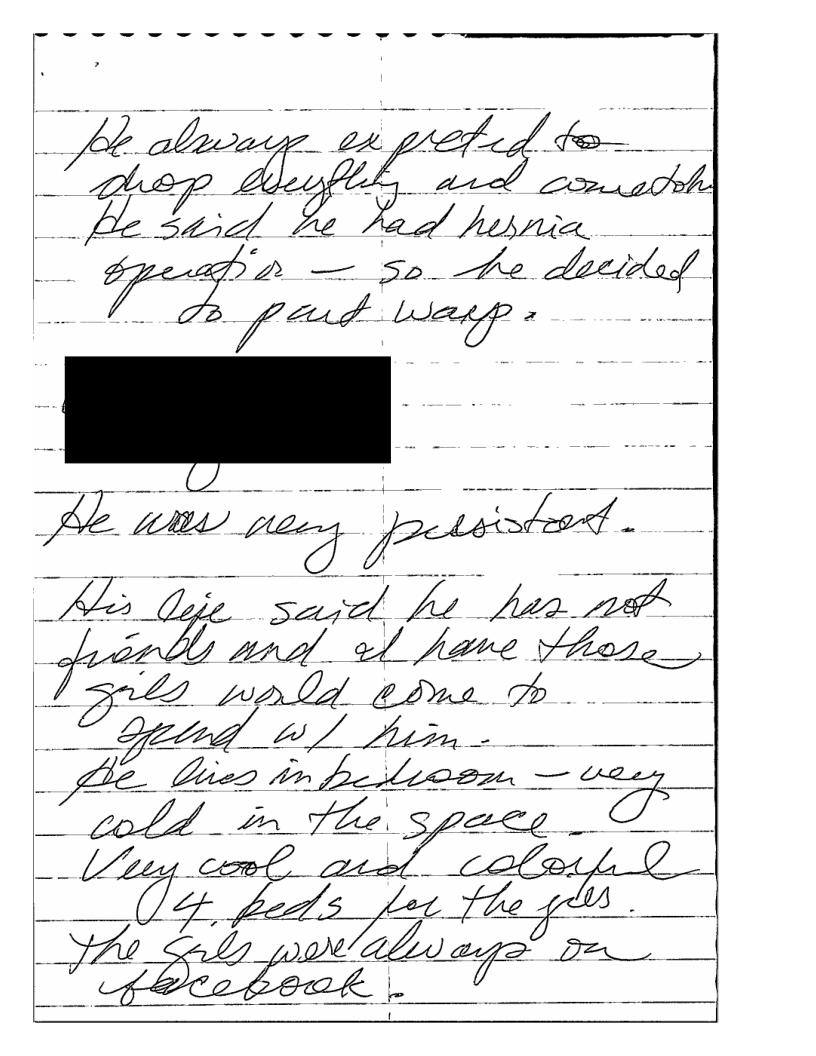 He always expreted to
drop everything and come to h
He said he had hernia
operation — so he decided
to part ways.
He was very persistant.
His life said he has not
friends and I have those
girls would come to
spend w/ him.
He lives in bedroom — very
cold in the space.
Very cool and colorful
4 beds for the girls.
The girls were always on
facebook.